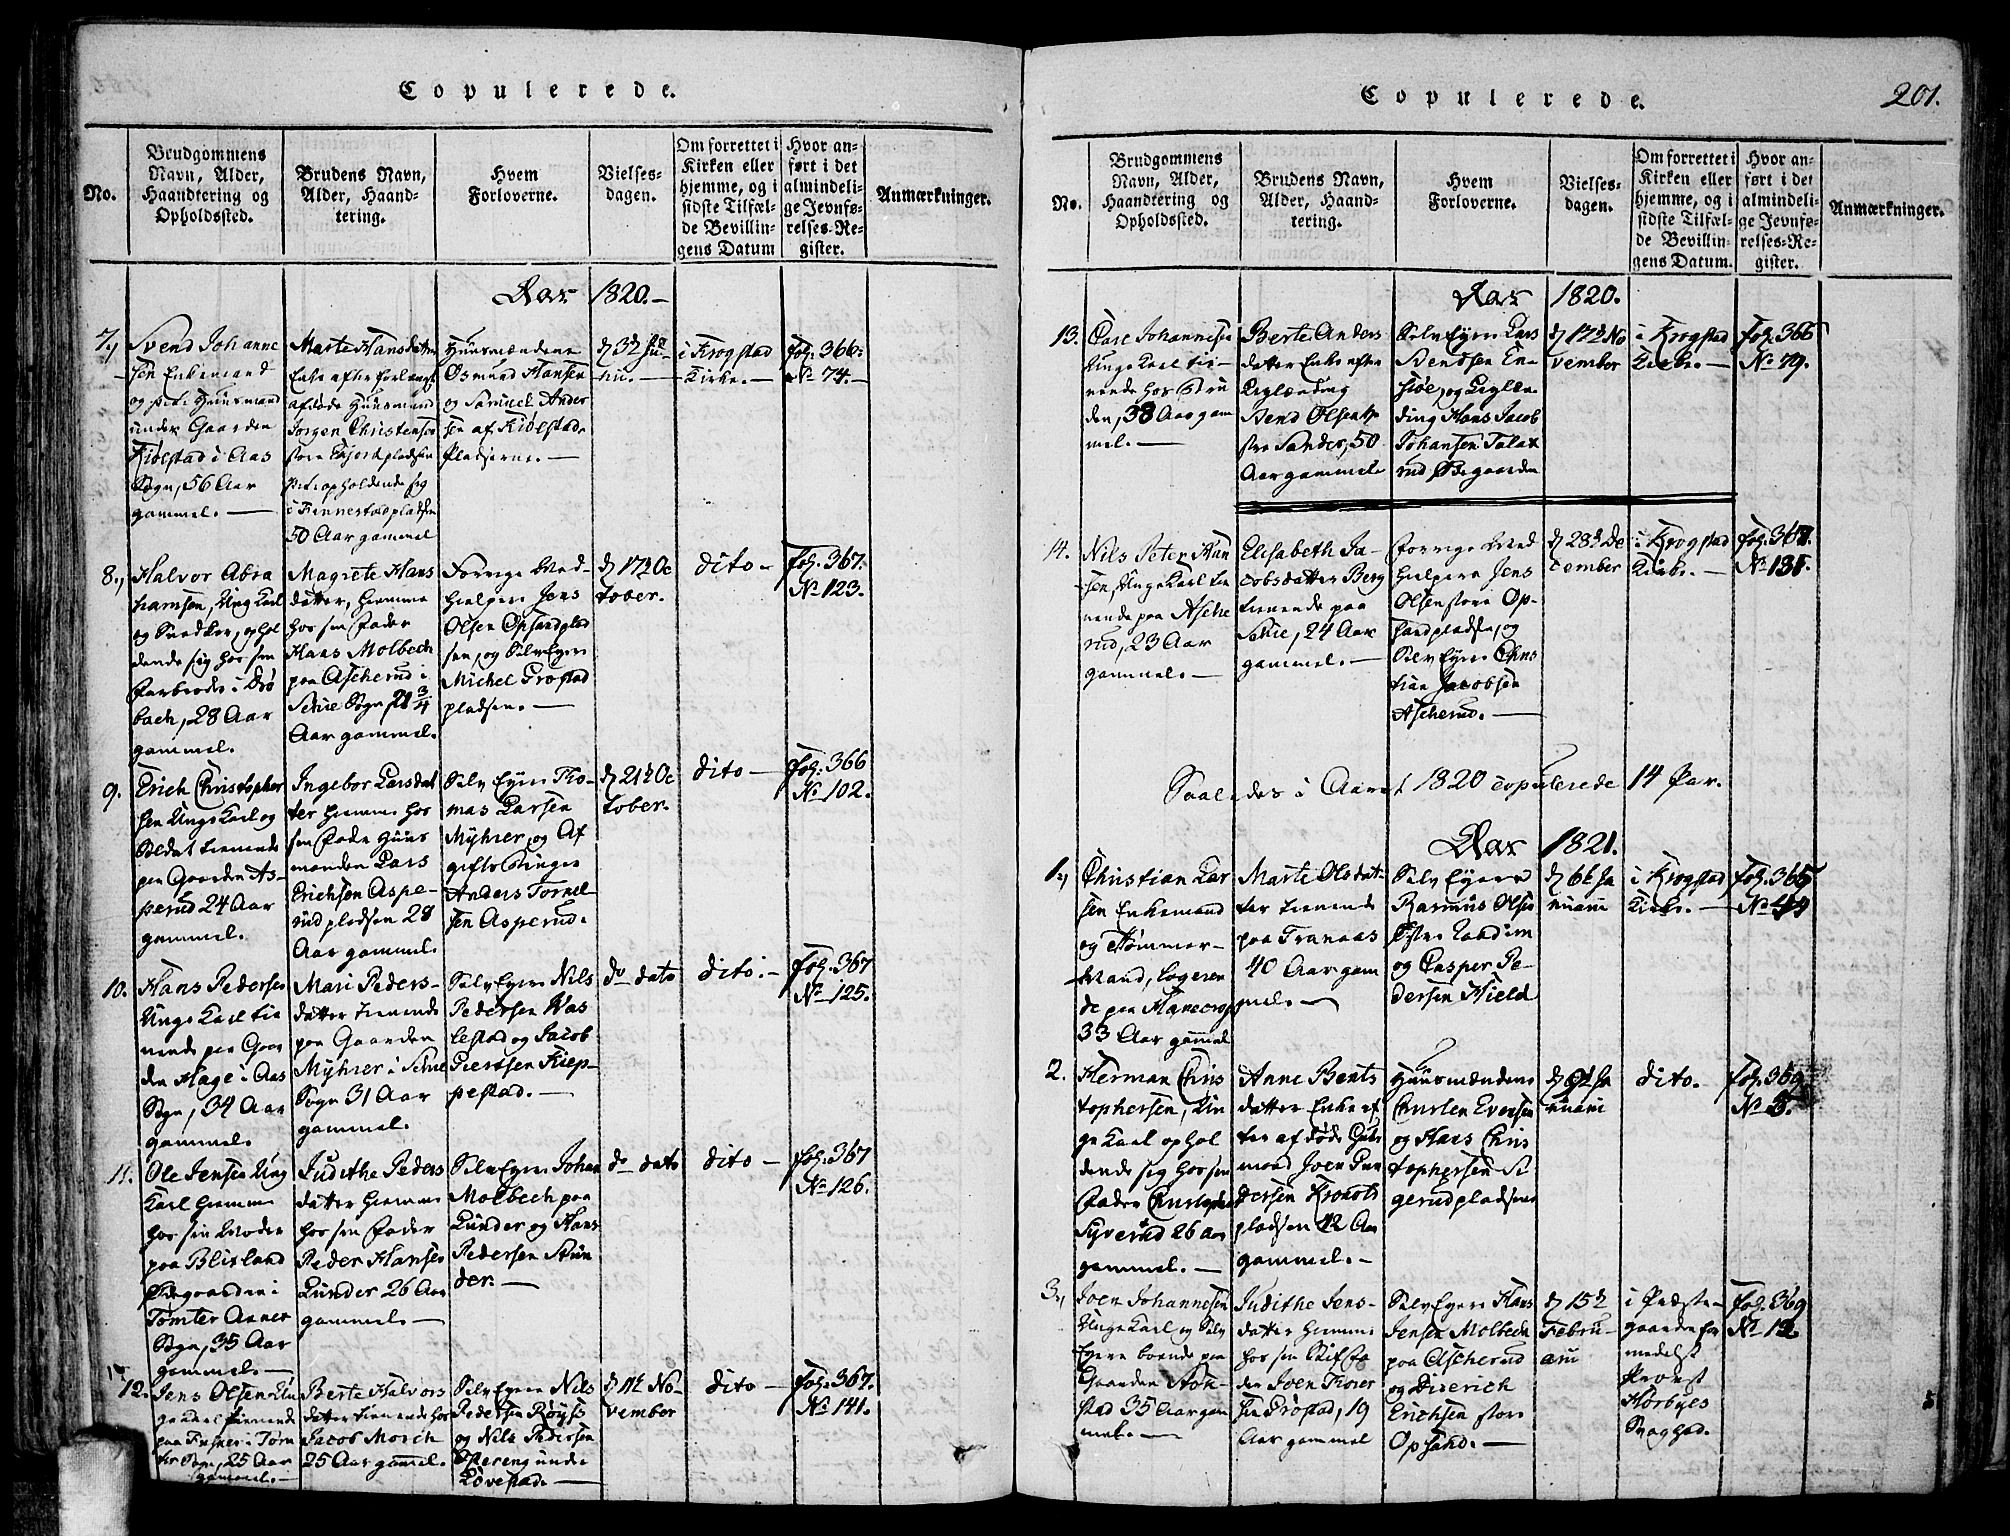 Copulerede.
No.
Brudgommens
Navn, Alder,
Haandtering og
Opholdssted.
Brudens Navn,
Alder, Haand-
tering.
Hvem
Forloverne.
Vielses-
dagen.
Om forrettet i
Kirken eller
hjemme, og i
sidste Tilfæl-
de Bevillin-
gens Datum
Hvor an-
ført i det
almindeli-
ge Jevnfø-
relses-Re-
gister.
Anmærkninger.
Aar 1820.
7,
Svend Johanne
sen Enkemand
og Huusmand
under Gaarden
Kiølstad i Aas
Sogn, 56 Aar
gammel.
Marte Hansdatter
Enke efter
afdøde Huusmand
Jørgen Christensen
opholdende sig
50 Aar gammel
Huusmændene
Osmund Hansen
og Samuel Ander
sen af Kiølstad
Pladserne.
i Krogstad
Kirke.
fol. 366.
No 74.
8,
Halvor Abra
hamsen, Ung Karl
og Snedker, ophol
dende sig hos sin
Farbroder i Drø
bach, 28 Aar
gammel.
Magrete Hans
datter, hiemme
hos sin Fader
Hans Molbech
paa Ascherud i
Aar gammel.
Forrige Med-
hielper Jens
Olsen Opsandplad
sen, og SelvEyer
Michel Prostad
pladsen.
d 17de Oc
tober.
dito
fol. 367.
No 123.
9.
Erich Christopher
sen Unge Karl og
Soldat tienende
paa Gaarden As-
perud 24 Aar
gammel.
Ingebor Larsdat
ter hiemme hos
sin Fader Huus
manden Lars
Erichsen Aspe-
rudpladsen 28
Aar gammel.
SelvEyer Tho-
mas Larsen
Myhrer, og Af
gifts Bruger
Anders Tornel-
sen Asperud.
d 21de Oc
tober.
dito
fol. 366
No 102.
10.
Hans Pedersen
Unge Karl tie
nende paa Gaar
den Hage i Aas
Sogn, 34 Aar
gammel.
Mari Peders-
datter tienende
paa Gaarden
Myhrer i
Sogn 31 Aar
gammel.
SelvEyer Nils
Pedersen Vas
lestad og Jacob
Piertsen Kiep-
pestad.
do dato
dito.
fol. 367
No 125.
11.
Ole Jensen Ung
Karl hiemme
hos sin Moder
paa Blixland
Ødegaarden i
Tomter Annex
Sogn, 35 Aar
gammel.
Judithe Peders
datter hiemme
hos sin Fader
Peder Hansen
Lunder 26 Aar
gammel.
SelvEyer Johan
Molbech paa
Lunder og Hans
Pedersen Stun
der.
do dato
dito
fol. 367
No 126.
12.
Jens Olsen Un
ge Karl tienende
Sogn, 25 Aar
gammel.
Berte Halvors
datter tienende hos
Jacob Morch
25 Aar gammel.
SelvEyer Nils
Pedersen Røyss
og Nils Pedersen
under
Løvestad.
No-
vember
dito
fol. 367.
No 141.
Copulerede.
201.
No.
Brudgommens
Navn, Alder,
Haandtering og
Opholdssted.
Brudens Navn,
Alder, Haand-
tering.
Hvem
Forloverne.
Vielses-
dagen.
Om forrettet i
Kirken eller
hjemme, og i
sidste Tilfæl-
de Bevillin-
gens Datum.
Hvor an-
ført i det
almindeli-
ge Jevnfø-
relses-Re-
gister.
Anmærkninger.
Aar 1820.
13.
Johannesen
Unge Karl tie
nende hos Bru
den, 38 Aar gam
mel.
Berte Anders
datter Enke efter
Leylænding
Bend Olsen
Sander, 50
Aar gammel
SelvEyer Lars
Svendsen En
siøe, og Leylæn
ding Hans Jacob
Johansen Talax
rud Ødegaarden
d 17de No
vember
i Krogstad
Kirke.
fol. 366
No 79.
14.
Nils Peter Han
sen, Unge Karl tie
nende paa Asche
rud, 23 Aar
gammel.
Elisabeth Ja-
cobsdatter Berg
tienende paa
24 Aar
gammel.
Forrige Med
hielper Jens
Olsen store Op-
sandpladsen, og
SelvEyer Chris
tian Jacobsen
Ascherud.
d 28de De
cember
i Krogstad
Kirke.
fol. 367.
No 131.
Saaledes i Aaret 1820 copulerede 14 Par.
Aar 1821.
1,
Christian Lar
sen Enkemand
og Tømmer-
Mand, logeren
de paa Hanecrog
33 Aar gammel
Marte Olsdat-
ter tienende
paa Tranaas
40 Aar gam
mel.
SelvEyere
Rasmus Olsen
Østre Landim
og Casper Pe-
dersen Hield
d 6te Ja
nuarii
i Krogstad
Kirke.
fol. 365
2.
Herman Chris
tophersen, Un
ge Karl ophol
dende sig hos sin
Fader Christopher
Syverud 26 aar
gammel.
Anne Bents
datter Enke ef
ter afdøde Huus
mand Joen Gun
dersen Kronots
pladsen 42 Aar
gammel.
Huusmændene
Christen Evensen
og Hans Chris
tophersen
gerudpladsene
nuarii
dito.
fol. 369
No 3.
3,
Joen Johannesen
Unge Karl og Selv
Eyer boende paa
Gaarden
stad 35 Aar gam
mel.
Judithe Jens-
datter hiemme
hos sin Stif Fa
der Joen Thorer
sen Prostad, 19
Aar gammel
SelvEyer Hans
Jensen Molbech
paa Ascherud
og Diderich
Erichsen store
Opsand.
d 15de
Febru-
arii
i Præste-
gaarden for
medelst
Provst
Korbyes
Svaghed.
fol. 369
No 12.